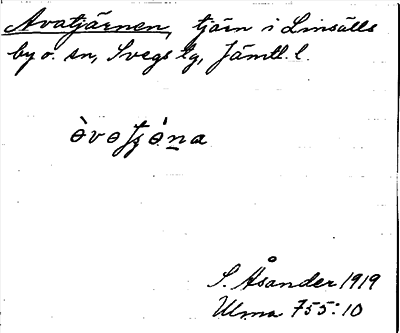 Avatjärnen, tjärn i Linsälls
by o. sn, Svegs tg, Jämtl. l.
S. Åsander 1919
Ulma 755:10